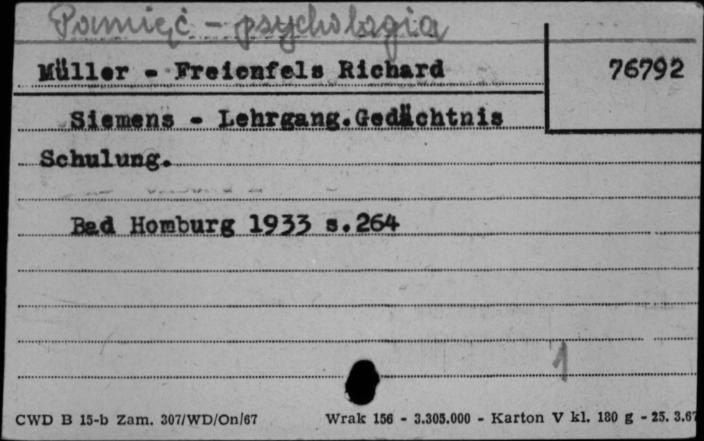 Pamięć - psychologia
Müller - Freienfels Richard
76792
Siemens - Lehrgang.Gedächtnis
Schulung.
Bad Homburg 1933 s.264
1
CWD B 15-b Zam. 307/WD/On/67 Wrak 156 - 3.305.000 - Karton V kl. 180 g - 25. 3.67